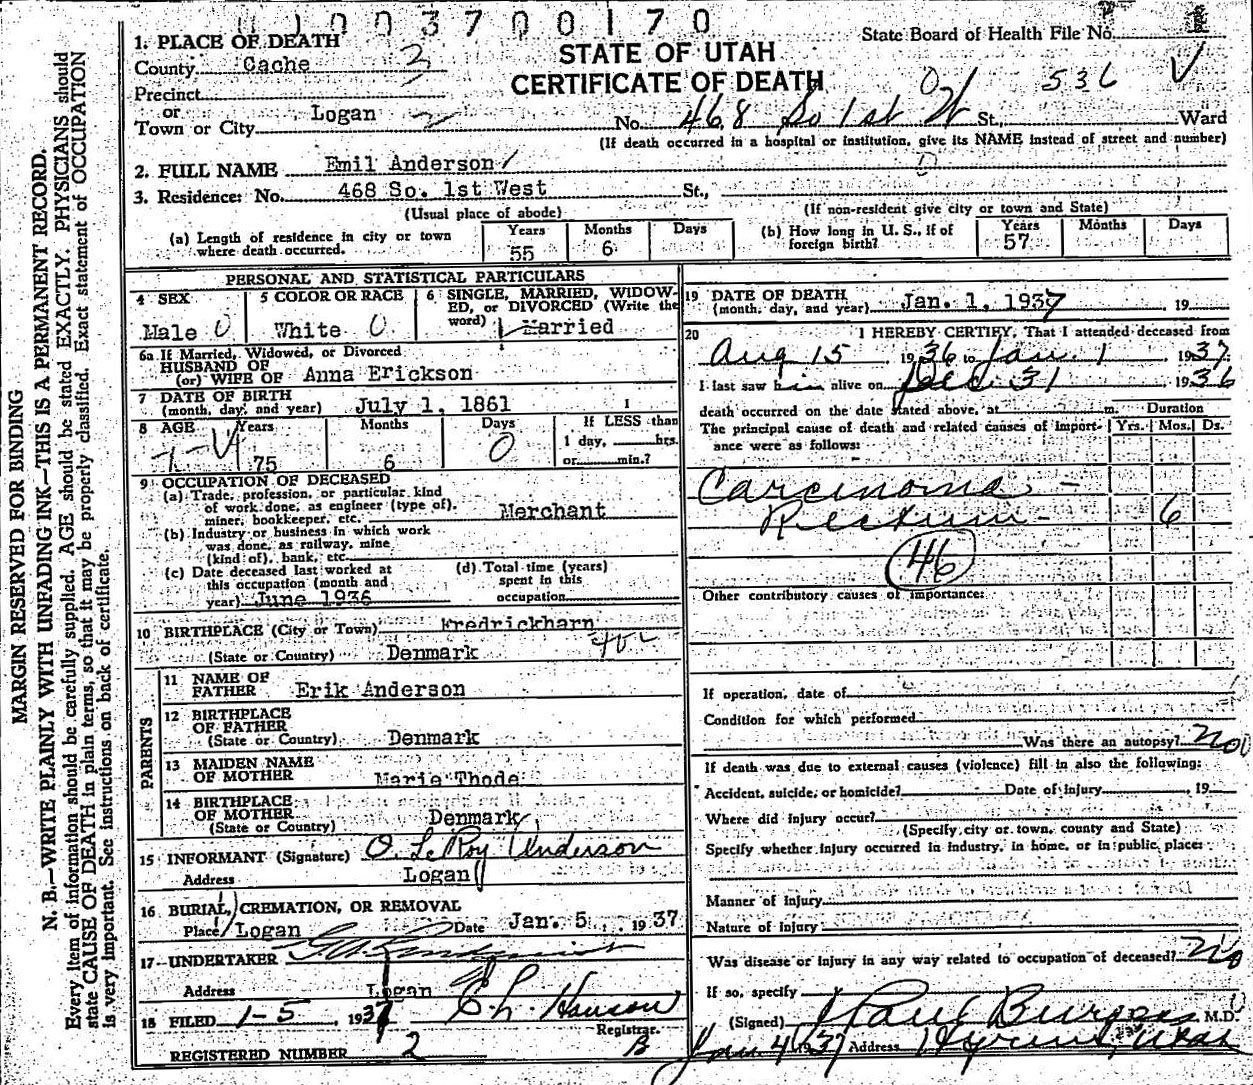 1003700170
1. PLACE OF DEATH
County Cache 3
Precinct
or
Town or City Logan 2
STATE OF UTAH
CERTIFICATE OF DEATH
State Board of Health File No.
536
No. 468 So 1st W St., Ward
(If death occurred in a hospital or institution, give its NAME instead of street and number)
2. FULL NAME Emil Anderson
3. Residence: No. 468 So. 1st West St.,
(Usual place of abode) (If non-resident give city or town and State)
(a) Length of residence in city or town where death occurred. Years 55 Months 6 Days
(b) How long in U. S., if of foreign birth? Years 57 Months Days
PERSONAL AND STATISTICAL PARTICULARS
4 SEX Male
5 COLOR OR RACE White
6 SINGLE, MARRIED, WIDOWED, or DIVORCED (Write the word) Married
6a If Married, Widowed, or Divorced
HUSBAND OF
(or) WIFE OF Anna Erickson
7 DATE OF BIRTH
(month, day, and year) July 1, 1861
8 AGE Years 75 Months 6 Days 0
If LESS than 1
1 day, hrs.
or min.?
9 OCCUPATION OF DECEASED
(a) Trade, profession, or particular kind
of work done, as engineer (type of),
miner, bookkeeper, etc. Merchant
(b) Industry or business in which work
was done, as railway, mine
(kind of), bank, etc.
(c) Date deceased last worked at
this occupation (month and
year) June 1936
(d) Total time (years)
spent in this
occupation
10 BIRTHPLACE (City or Town) Fredrickharn
(State or Country) Denmark
PARENTS
11 NAME OF
FATHER Erik Anderson
12 BIRTHPLACE
OF FATHER
(State or Country) Denmark
13 MAIDEN NAME
OF MOTHER Marie Thode
14 BIRTHPLACE
OF MOTHER
(State or Country) Denmark
15 INFORMANT (Signature) O. LeRoy Anderson
Address Logan
16 BURIAL, CREMATION, OR REMOVAL
Place Logan Date Jan. 5, 1937
17 UNDERTAKER
Address Logan
18 FILED 1-5, 1937 E. L. Hanson
Registrar.
REGISTERED NUMBER 2
19 DATE OF DEATH
(month, day, and year) Jan. 1, 1937, 19
20 I HEREBY CERTIFY, That I attended deceased from
Aug 15, 1936 to Jan. 1, 1937
I last saw him alive on Dec. 31, 1936
death occurred on the date stated above, at m. Duration
The principal cause of death and related causes of importance were as follows: Yrs. Mos. Ds.
Carcinoma -
Rectum - 6
46
Other contributory causes of importance:
If operation, date of
Condition for which performed
Was there an autopsy? No
If death was due to external causes (violence) fill in also the following:
Accident, suicide, or homicide? Date of injury, 19
Where did injury occur?
(Specify city or town, county and State)
Specify whether injury occurred in industry, in home, or in public place:
Manner of injury
Nature of injury
Was disease or injury in any way related to occupation of deceased? No
If so, specify
(Signed) Paul Burgess M.D.
Jan 4 1937 Address Hyrum, Utah
MARGIN RESERVED FOR BINDING
N. B.—WRITE PLAINLY WITH UNFADING INK—THIS IS A PERMANENT RECORD.
Every item of information should be carefully supplied. AGE should be stated EXACTLY. PHYSICIANS should
state CAUSE OF DEATH in plain terms, so that it may be properly classified. Exact statement of OCCUPATION
is very important. See instructions on back of certificate.